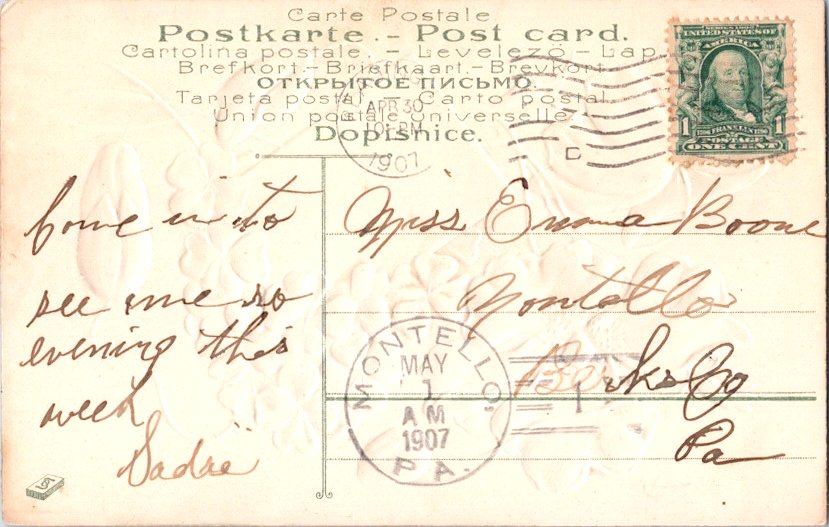 Carte Postale
Postkarte. - Post card.
Cartolina postale. - Levelező - Lap.
Brefkort. - Briefkaart. - Brevkort.
ОТКРЫТОЕ ПИСЬМО.
Tarjeta postal. - Carto postal.
Union postale universelle.
Dopisnice.
SERIES 1902
UNITED STATES OF
AMERICA
1 FRANKLIN 1
POSTAGE
ONE CENT
APR 30
PM
1907
D
Come in to
see me so
evening this
week
Sadie
Miss Emma Boone
Montello
Berks Co
Pa
MONTELLO,
MAY
1
A M
1907
PA.
1